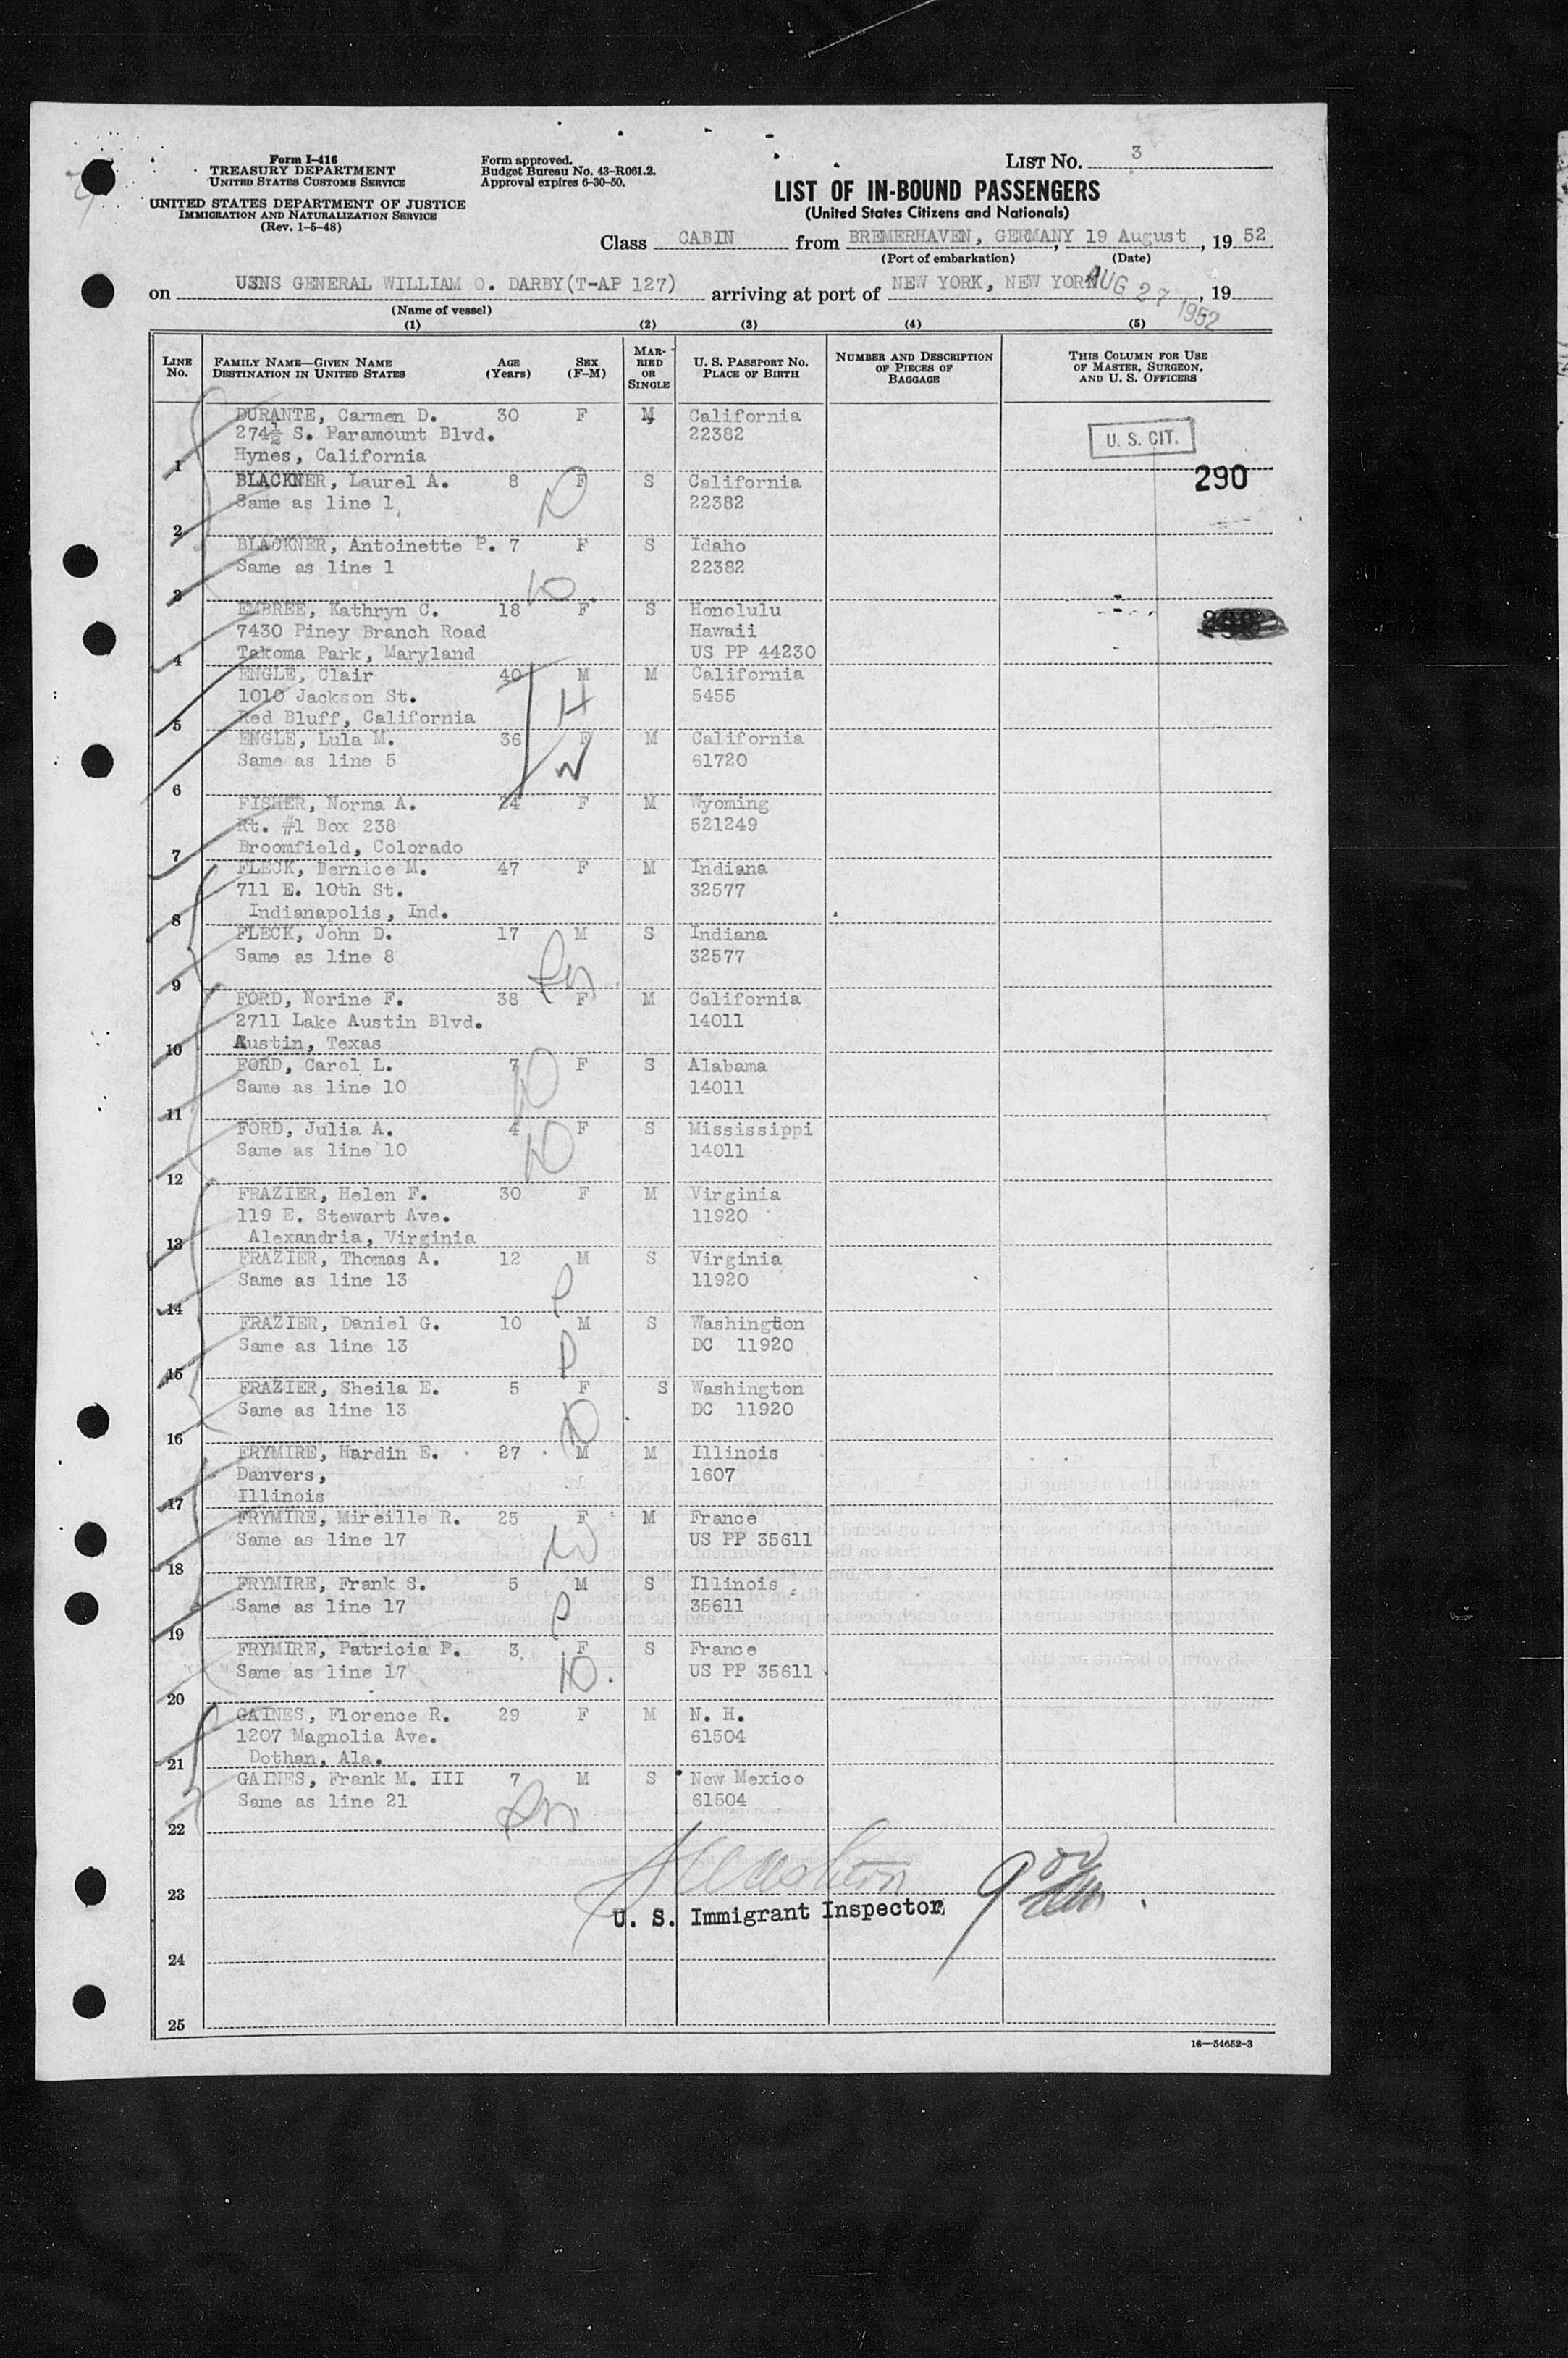 Form I-416
TREASURY DEPARTMENT
UNITED STATES CUSTOMS SERVICE
UNITED STATES DEPARTMENT OF JUSTICE
IMMIGRATION AND NATURALIZATION SERVICE
(Rev. 1-5-48)
Form approved.
Budget Bureau No. 43-R061.2.
Approval expires 6-30-50.
LIST No. 3
LIST OF IN-BOUND PASSENGERS
(United States Citizens and Nationals)
Class CABIN from BREMERHAVEN, GERMANY, 19 August, 19 52
(Port of embarkation) (Date)
on USNS GENERAL WILLIAM O. DARBY(T-AP 127) arriving at port of NEW YORK, NEW YORK AUG 27 1952, 19
(Name of vessel)
(1) (2) (3) (4) (5)
LINE No. FAMILY NAME—GIVEN NAME DESTINATION IN UNITED STATES AGE (Years) SEX (F-M) MARRIED OR SINGLE U. S. PASSPORT No. PLACE OF BIRTH NUMBER AND DESCRIPTION OF PIECES OF BAGGAGE THIS COLUMN FOR USE OF MASTER, SURGEON, AND U. S. OFFICERS
DURANTE, Carmen D. 30 F M California
274½ S. Paramount Blvd. 22382 U. S. CIT.
1 Hynes, California
BLACKNER, Laurel A. 8 F S California 290
Same as line 1 22382
2
BLACKNER, Antoinette P. 7 F S Idaho
Same as line 1 22382
3
EMBREE, Kathryn C. 18 F S Honolulu
7430 Piney Branch Road Hawaii
4 Takoma Park, Maryland US PP 44230
ENGLE, Clair 40 M M California
1010 Jackson St. H 5455
5 Red Bluff, California
ENGLE, Lula M. 36 F M California
Same as line 5 W 61720
6
FISHER, Norma A. 24 F M Wyoming
Rt. #1 Box 238 521249
7 Broomfield, Colorado
FLECK, Bernice M. 47 F M Indiana
711 E. 10th St. 32577
8 Indianapolis, Ind.
FLECK, John D. 17 M S Indiana
Same as line 8 32577
9
FORD, Norine F. 38 F M California
2711 Lake Austin Blvd. 14011
10 Austin, Texas
FORD, Carol L. 7 F S Alabama
Same as line 10 14011
11
FORD, Julia A. 4 F S Mississippi
Same as line 10 14011
12
FRAZIER, Helen F. 30 F M Virginia
119 E. Stewart Ave. 11920
13 Alexandria, Virginia
FRAZIER, Thomas A. 12 M S Virginia
Same as line 13 11920
14
FRAZIER, Daniel G. 10 M S Washington
Same as line 13 DC 11920
15
FRAZIER, Sheila E. 5 F S Washington
Same as line 13 DC 11920
16
FRYMIRE, Hardin E. 27 M M Illinois
Danvers, 1607
17 Illinois
FRYMIRE, Mireille R. 25 F M France
Same as line 17 W US PP 35611
18
FRYMIRE, Frank S. 5 M S Illinois
Same as line 17 35611
19
FRYMIRE, Patricia P. 3 F S France
Same as line 17 US PP 35611
20
GAINES, Florence R. 29 F M N. H.
1207 Magnolia Ave. 61504
21 Dothan, Ala.
GAINES, Frank M. III 7 M S New Mexico
Same as line 21 61504
22
23
U. S. Immigrant Inspector
24
25
16—54652-3